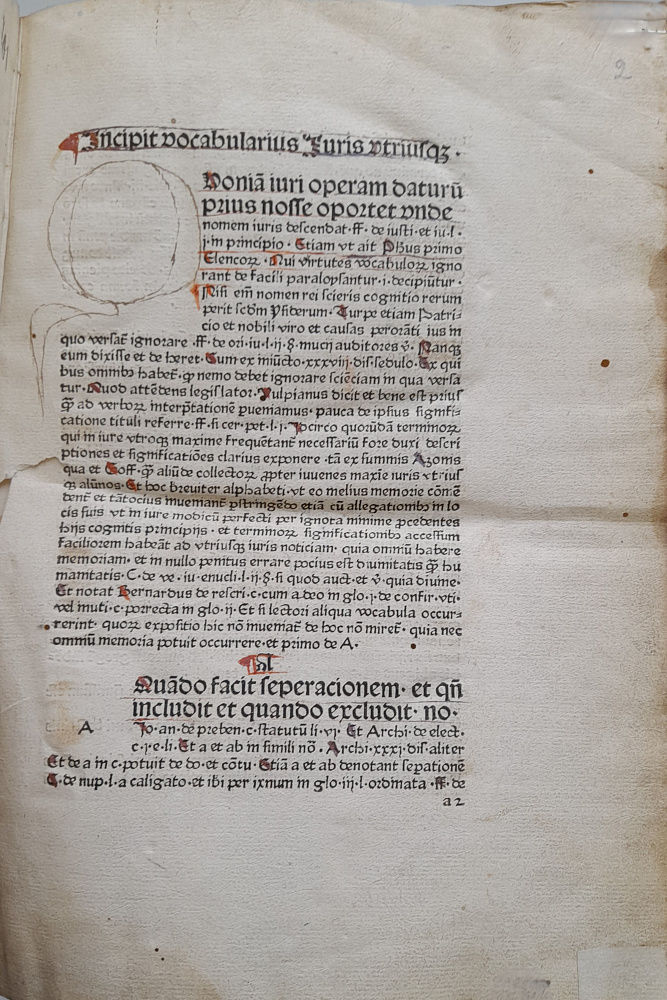 2
Incipit vocabularius Iuris vtriusqꝫ.
Uoniā iuri operam daturū
prius nosse oportet vnde
nomem iuris descendat·ff· de iusti·et iu·l·
j·in principio· Etiam vt ait Phus primo
Elencoꝝ· Qui virtutes vocabuloꝝ igno
rant de facili paralogisantur·i·decipiūtur·
Nisi em̄ nomen rei scieris cognitio rerum
perit scdm Ysiderum· Turpe etiam Patri⸗
cio et nobili viro et causas perorāti ius in
quo versat̄ ignorare ·ff·de ori·iu·l·ij·§·mucij auditores v̄· Nanqꝫ
eum dixisse et de heret· Cum ex iniūcto·xxxviij·dis·sedulo· Ex qui
bus omnibꝰ habet̄· ꝙ nemo debet ignorare sciēciam in qua versa
tur· Quod attēdens legislator· Vulpianus dicit et bene est prius
ꝙ̄ ad verboꝝ interp̄tationē ꝑueniamus· pauca de ipsius signifi⸗
catione tituli referre·ff·si cer·pet·l·j· Idcirco quorūdā terminoꝝ
qui in iure vtroqꝫ maxime frequētant̄ necessariū fore duxi descri
ptiones et significatiōes clarius exponere ·tā ex summis Azonis
qua et Goff· ꝙ̄ aliūde collectoꝝ ꝓpter iuuenes maxīe iuris vtriuſ
qꝫ alūnos· Et hoc breuiter alphabeti·vt eo melius memorie cōmē
dent̄ et tātocius inueniant̄ pstringēdo etiā cū allegationibꝰ in lo
cis suis vt in iure modicū perfecti per ignota minime ꝓcedentes
hijs cognitis principijs · et terminoꝝ significationibꝰ accessum
faciliorem habeāt ad vtriusqꝫ iuris noticiam· quia omniū habere
memoriam· et in nullo penitus errare pocius est diuinitatis ꝙ̄ hu
manitatis· C·de ve·iu·enucli·l·ij·§·si quod auct·et v̄·quia diuine·
Et notat Bernardus de rescri·c·cum a deo in glo·j·de confir·vti·
vel inuti·c·porrecta in glo·ij· Et si lectori aliqua vocabula occur⸗
rerint· quoꝝ expositio hic nō inueniat̄ de hoc nō miret̄· quia nec
omniū memoria potuit occurrere·et primo de A·
Quādo facit seperacionem· et qn̄
includit et quando excludit· no·
A Jo·an·de preben·c·statutū li·vj· Et Archi·de elect·
c·j·e·li· Et a et ab in simili nō · Archi·xxxj·dis·aliter
Et de a in c·potuit de do·et cōtu· Etiā a et ab denotant sepationē
C·de nup·l·a caligato·et ibi per ixnum in glo·iij·l·ordinata ·ff·de
a2